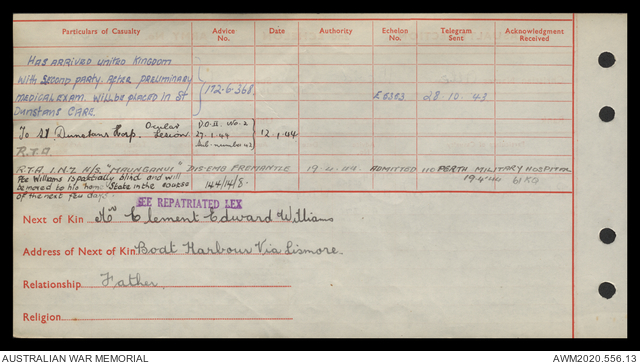 Particulars of Casualty Advice No. Date Authority Echelon No. Telegram Sent Acknowledgment Received
HAS ARRIVED UNITED KINGDOM
WITH SECOND PARTY. AFTER PRELIMINARY
MEDICAL EXAM. WILL BE PLACED IN ST 172.6.368 28.10.43
DUNSTANS CARE.
To St Dunstans Hosp. Ocular Lesion 12.1.44
R.T.A
R.T.A I.N.Z H/S "MAUNGANUI" DIS-EMB FREMANTLE 19.4.44 ADMITTED 110 PERTH MILITARY HOSPITAL
Pte Williams is partially blind and will 19.4.44
be moved to his "home" State in the course 144/14/8.
of the next few days
SEE REPATRIATED LEX
Next of Kin Mr Clement Edward Williams
Address of Next of Kin Boat Harbour Via Lismore.
Relationship Father
Religion
AUSTRALIAN WAR MEMORIAL AWM2020.556.13